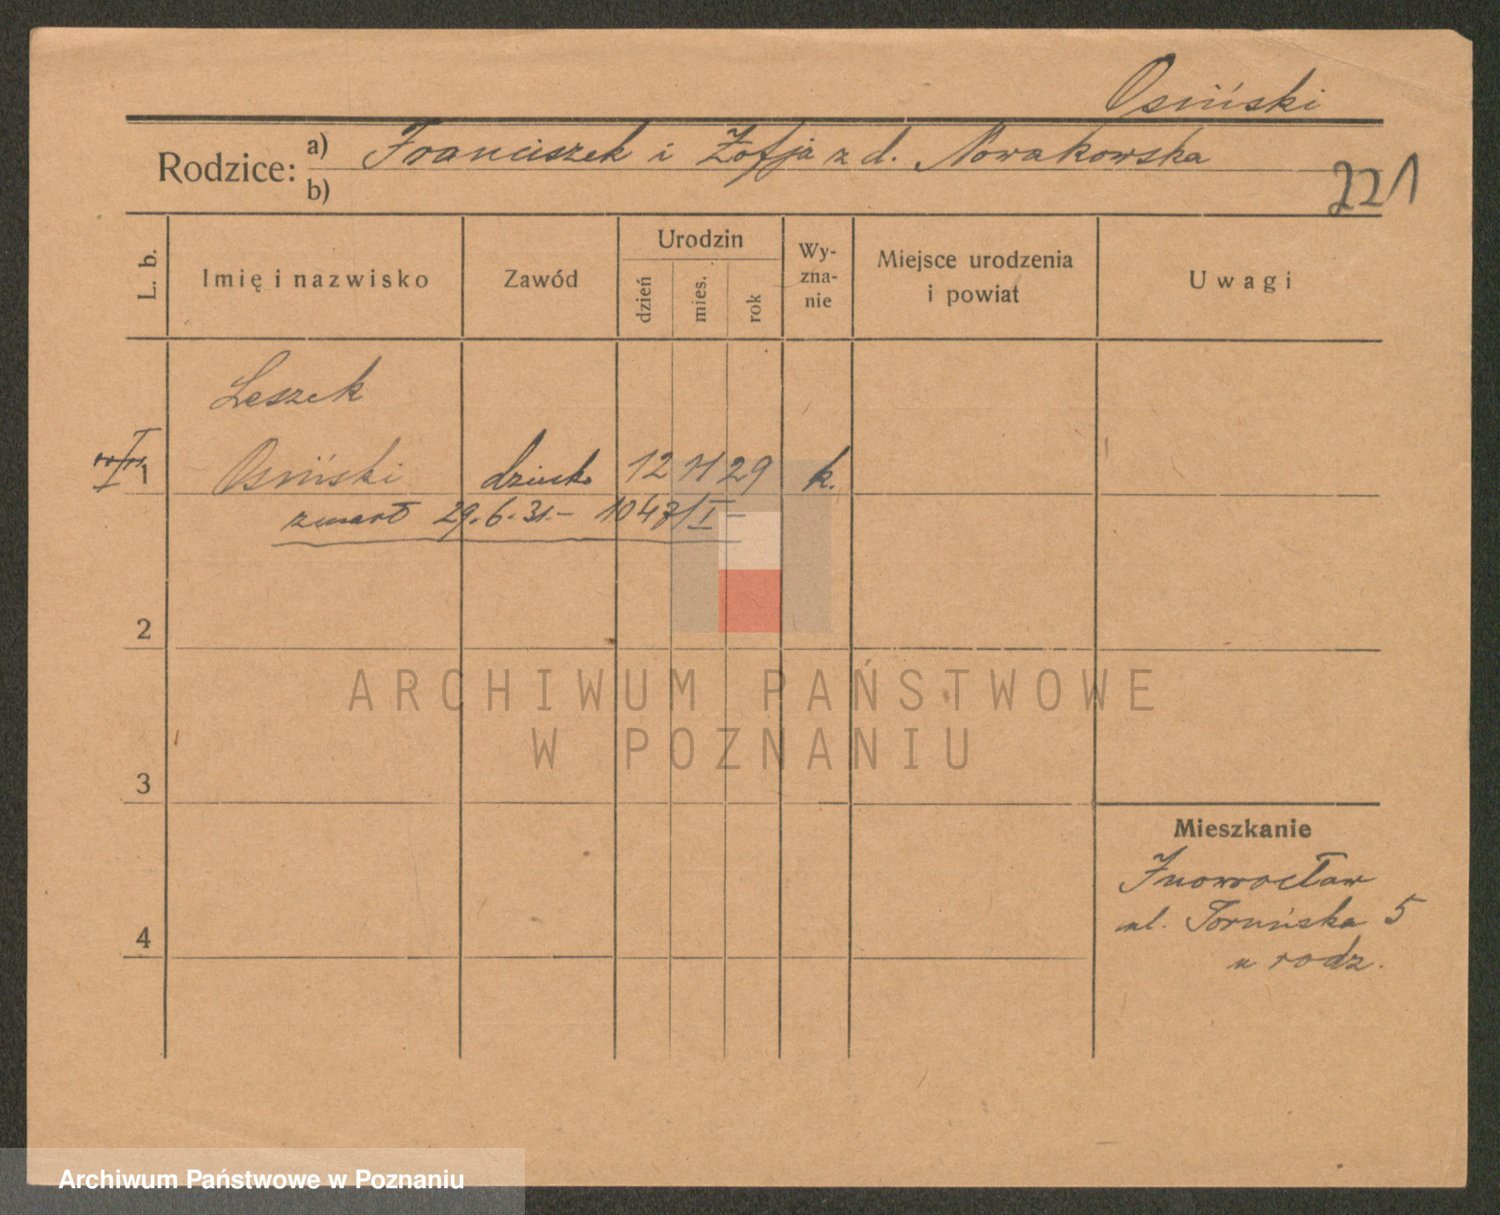 Osiński
Rodzice: a) Franciszek i Zofja z d. Nowakowska
b)
221
L. b.
Imię i nazwisko
Zawód
Urodzin
dzień
mies.
rok
Wy-
zna-
nie
Miejsce urodzenia
i powiat
Uwagi
Leszek
1 Osiński dziecko 12 11 29 k.
zmarł 29.6.31.– 1047/I –
2
ARCHIWUM PAŃSTWOWE
W POZNANIU
3
Mieszkanie
Inowrocław
ul. Toruńska 5
u rodz.
4
Archiwum Państwowe w Poznaniu